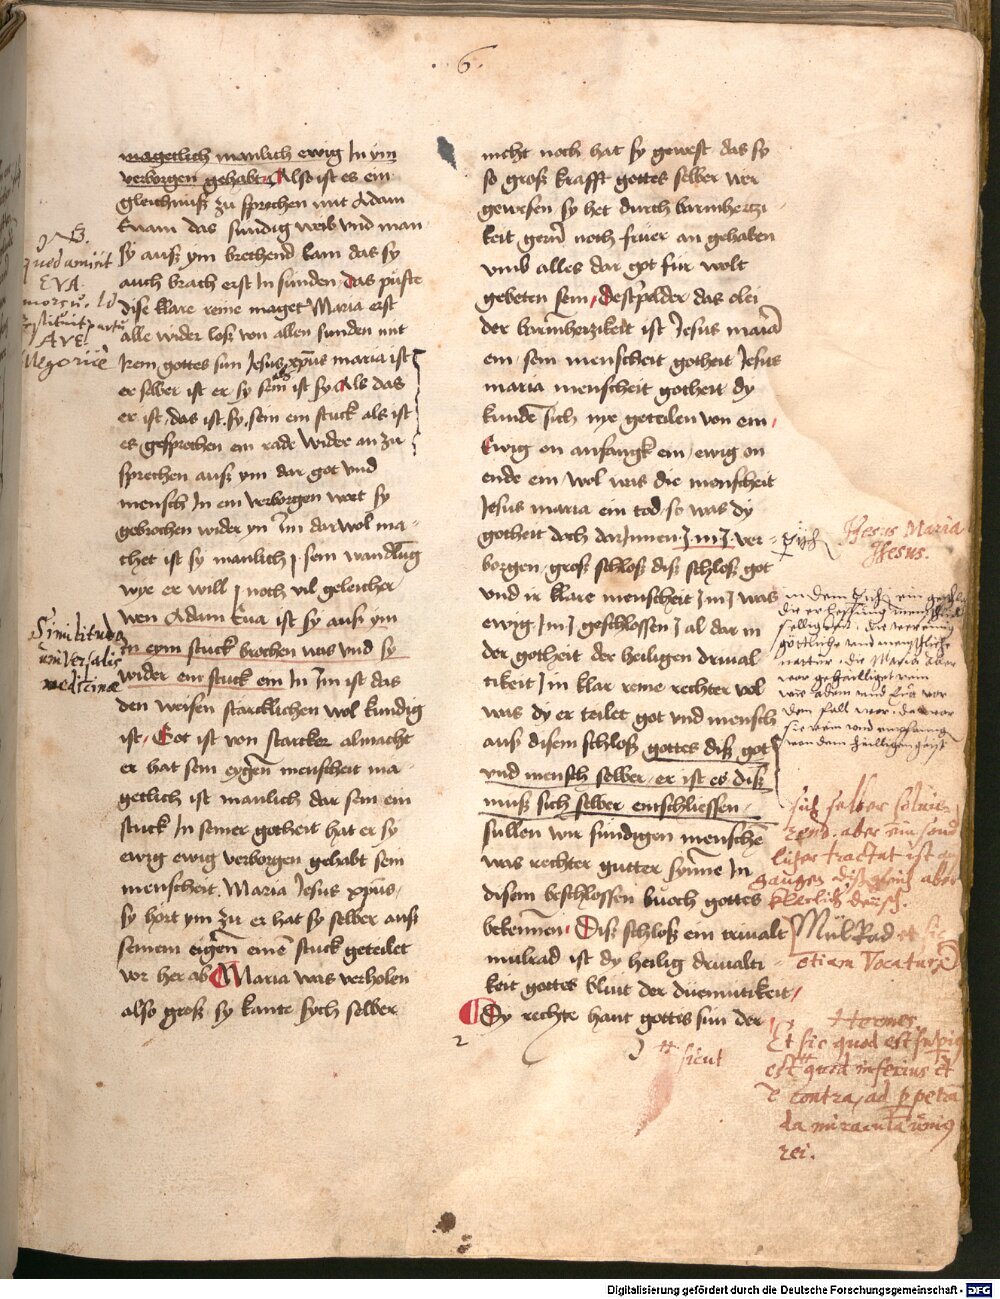 6
magetlich manlich ewig In ym
verborgen gehabt Also ist es ein
gleichnuß zu sprechen mit Adam
Euam das sundig weib vnd man
sy auß ym brechend kam das sy
auch brach erst In sunden das puste
dise klare reine maget Maria erst
alle wider loß von allen sunden mit
Irem gottes sun Jesus xpus maria ist
er selber ist er sy sein ist sy Als das
er ist das ist sy sein ein stuck als ist
es gesprochen ein rade wider an zu
sprechen auß ym dar got vnd
mensch In ein verborgen wort sy
gebrochen wider yn Im dar wol ma
chet ist sy manlich sein wandlung
wye er will noch vil geleicher
wen Adam Eua ist sy auß ym
In eym stuck brochen was vnd sy
wider ein stuck ein In Im ist das
den weisen starcklichen wol kundig
ist Got ist von starcker almacht
er hat sein eygen menscheit ma
getlich ist manlich dar sein ein
stuck In seiner gotheit hat er sy
ewig ewig verborgen gehabt sein
menscheit Maria Jesus xpus
sy hort ym zu er hat sy selber auß
seinem eigen eine stuck geteilet
vor her ab Maria was verholen
also groß sy kante sych selber
nicht noch hat sy gewest das sy
so groß krafft gottes selber wer
gewesen sy het durch barmhertzi
keit gern noch fruer an gehaben
vmb alles dar got fur wolt
gebeten sein das olei
der barmherzikeit ist Jesus maria
ein sein menscheit gotheit Jesus
maria menscheit gotheit dy
kunde sich nye geteilen von ein
Ewig on anfangk ein ewig on
ende ein wol was die menscheit
Jesus maria ein tod so was dy
gotheit doch dar Innen Im ver
borgen groß schloß diß schloß got
vnd ir klare menscheit Im was
ewig Im geschlossen al dar in
der gotheit der heiligen driual
tikeit In klar reine rechter vol
was dy er teilet got vnd mensch
auß disem schloß gottes diß got
vnd mensch selber er ist es diß
muß sich selber entschliessen
sullen wir sundigen mensche
was rechter gutter synne In
disem beschlossen buoch gottes
bekennen Diß schloß ein triualt
mulrad ist dy heilig driualti
keit gottes blut der duemutikeit
Dy rechte hant gottes sun der
2
NB.
quod amisit
EVA
morsu, Id
restituit partu
AVE
Allegorice
Similitudo
universalis
medicinae
Jhesus Maria
Jhesus.
göttliche und menschliche
natur, die Maria aber
wie Adam und Eva vor
dem fall
von dem heiligen geist
sich selber
aber
tractat ist
aber
MülRad
etiam Vocatur
Hermes
Et sic quod est superius
est quod inferius et
e contra, ad perpetranda
miracula unius
rei.
sicut
Digitalisierung gefördert durch die Deutsche Forschungsgemeinschaft - DFG